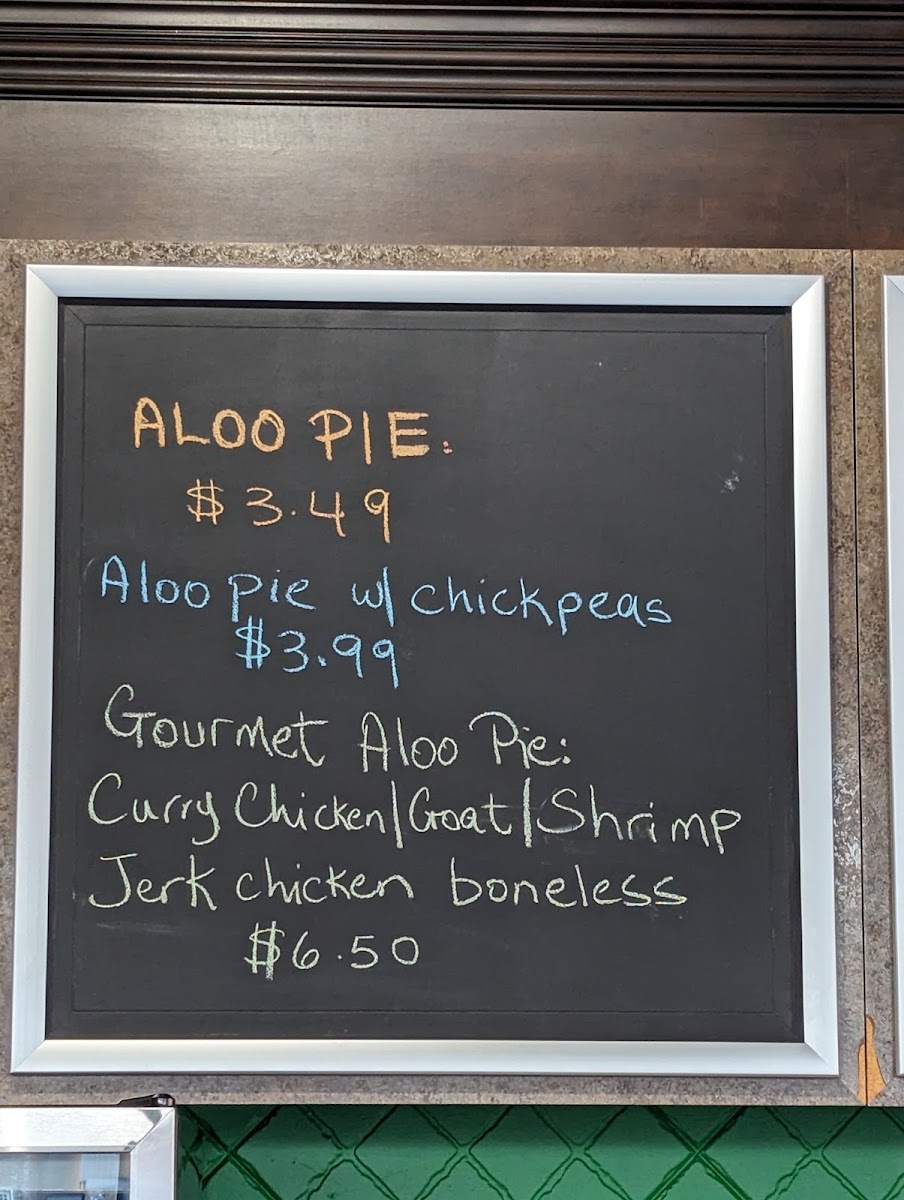 ALOO PIE.
$3.49
Aloo pie w/ chickpeas
$3.99
Gourmet Aloo Pie:
Curry Chicken/Goat/Shrimp
Jerk chicken boneless
$6.50